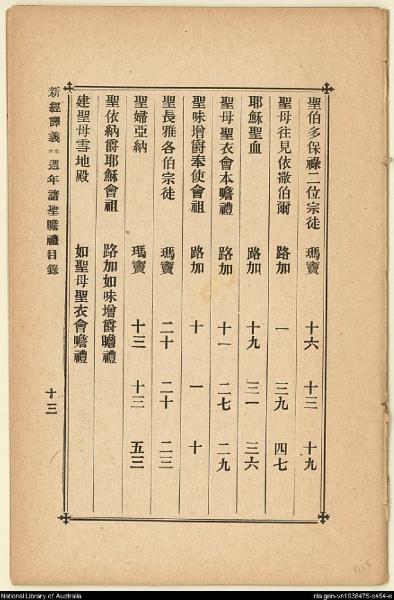 聖伯多保祿二位宗徒 瑪竇 十六 十三 十九
聖母往見依撒伯爾 路加 一 三九 四七
耶穌聖血 路加 十九 三一 三六
聖母聖衣會本瞻禮 路加 十一 二七 二九
聖味增爵奉使會祖 路加 十 一 十
聖長雅各伯宗徒 瑪竇 二十 二十 二三
聖婦亞納 瑪竇 十三 十三 五三
聖依納爵耶穌會祖 路加如味增爵瞻禮
建聖母雪地殿 如聖母聖衣會瞻禮
新經譯義 週年諸聖瞻禮目錄 十三
National Library of Australia
nla.gen-vn1938475-s454-e